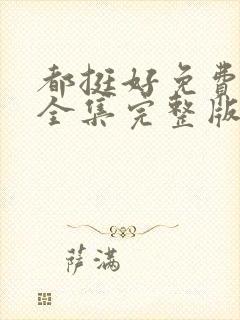 都挺好免费
全集完整版
萨满